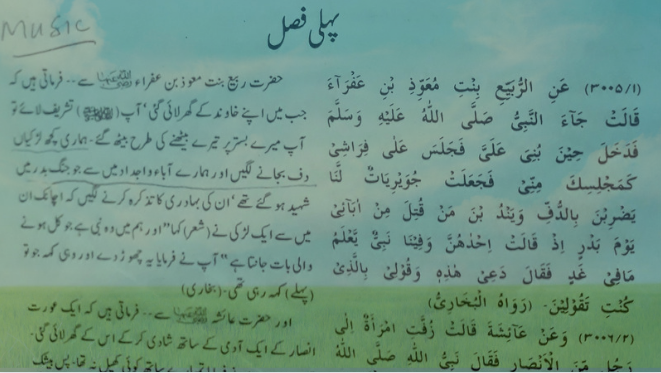 MUSIC
پہلی فصل
(۳۰۰۵/۱) عَنِ الرُّبَيِّعِ بِنْتِ مُعَوِّذِ بْنِ عَفْرَآءَ
قَالَتْ جَآءَ النَّبِيُّ صَلَّى اللهُ عَلَيْهِ وَسَلَّمَ
فَدَخَلَ حِيْنَ بُنِيَ عَلَيَّ فَجَلَسَ عَلٰى فِرَاشِيْ
كَمَجْلِسِكَ مِنِّيْ فَجَعَلَتْ جُوَيْرِيَاتٌ لَّنَا
يَضْرِبْنَ بِالدُّفِّ وَيَنْدُ بْنَ مَنْ قُتِلَ مِنْ اٰبَآئِيْ
يَوْمَ بَدْرٍ اِذْ قَالَتْ اِحْدٰهُنَّ وَفِيْنَا نَبِيٌّ يَّعْلَمُ
مَافِيْ غَدٍ فَقَالَ دَعِيْ هٰذِهِ وَقُوْلِيْ بِالَّذِيْ
كُنْتِ تَقُوْلِيْنَ۔ (رَوَاهُ الْبُخَارِيُّ)
(۳۰۰۶/۲) وَعَنْ عَآئِشَةَ قَالَتْ زُفَّتِ امْرَأَةٌ اِلٰى
رَجُلٍ مِّنَ الْاَنْصَارِ فَقَالَ نَبِيُّ اللهِ صَلَّى اللهُ
حضرت ربیع بنت معوذ بن عفراء سے۔۔ فرماتی ہیں کہ
جب میں اپنے خاوند کے گھر لائی گئی' آپ (ﷺ) تشریف لائے تو
آپ میرے بستر پر تیرے بیٹھنے کی طرح بیٹھ گئے۔ ہماری کچھ لڑکیاں
دف بجانے لگیں اور ہمارے آباء و اجداد میں سے جو جنگ بدر میں
شہید ہو گئے تھے' ان کی بہادری کا تذکرہ کرنے لگیں کہ اچانک ان
میں سے ایک لڑکی نے (شعر) کہا "اور ہم میں وہ نبی ہے جو کل ہونے
والی بات جانتا ہے" آپ نے فرمایا یہ چھوڑ دے اور وہی کہہ جو تو
(پہلے) کہہ رہی تھی۔ (بخاری)
اور حضرت عائشہ سے۔۔ فرماتی ہیں کہ ایک عورت
انصار کے ایک آدمی کے ساتھ شادی کر کے اس کے گھر لائی گئی۔